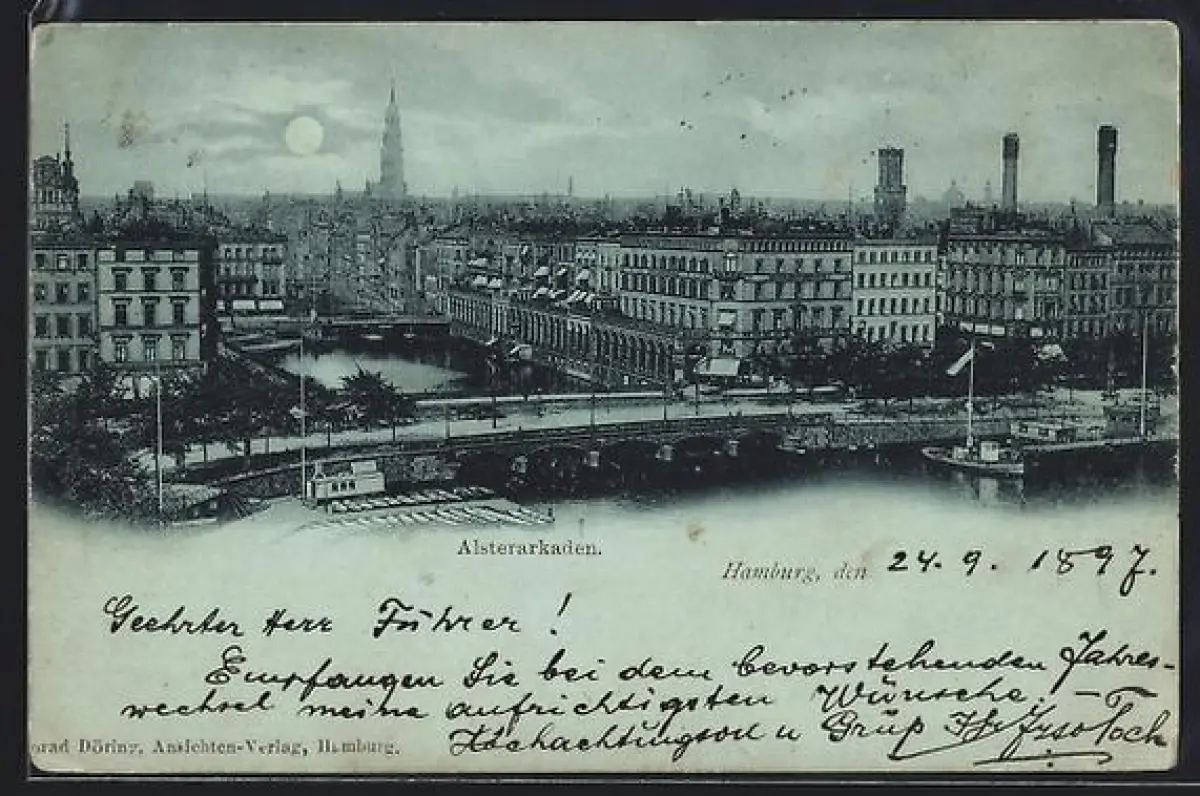 Alsterarkaden.
Hamburg, den 24. 9. 1897.
Geehrter Herr Führer!
Empfangen Sie bei dem bevorstehenden Jahres-
wechsel meine aufrichtigsten Wünsche! –
Hochachtungsvoll u Gruß
Döring, Ansichten-Verlag, Hamburg.